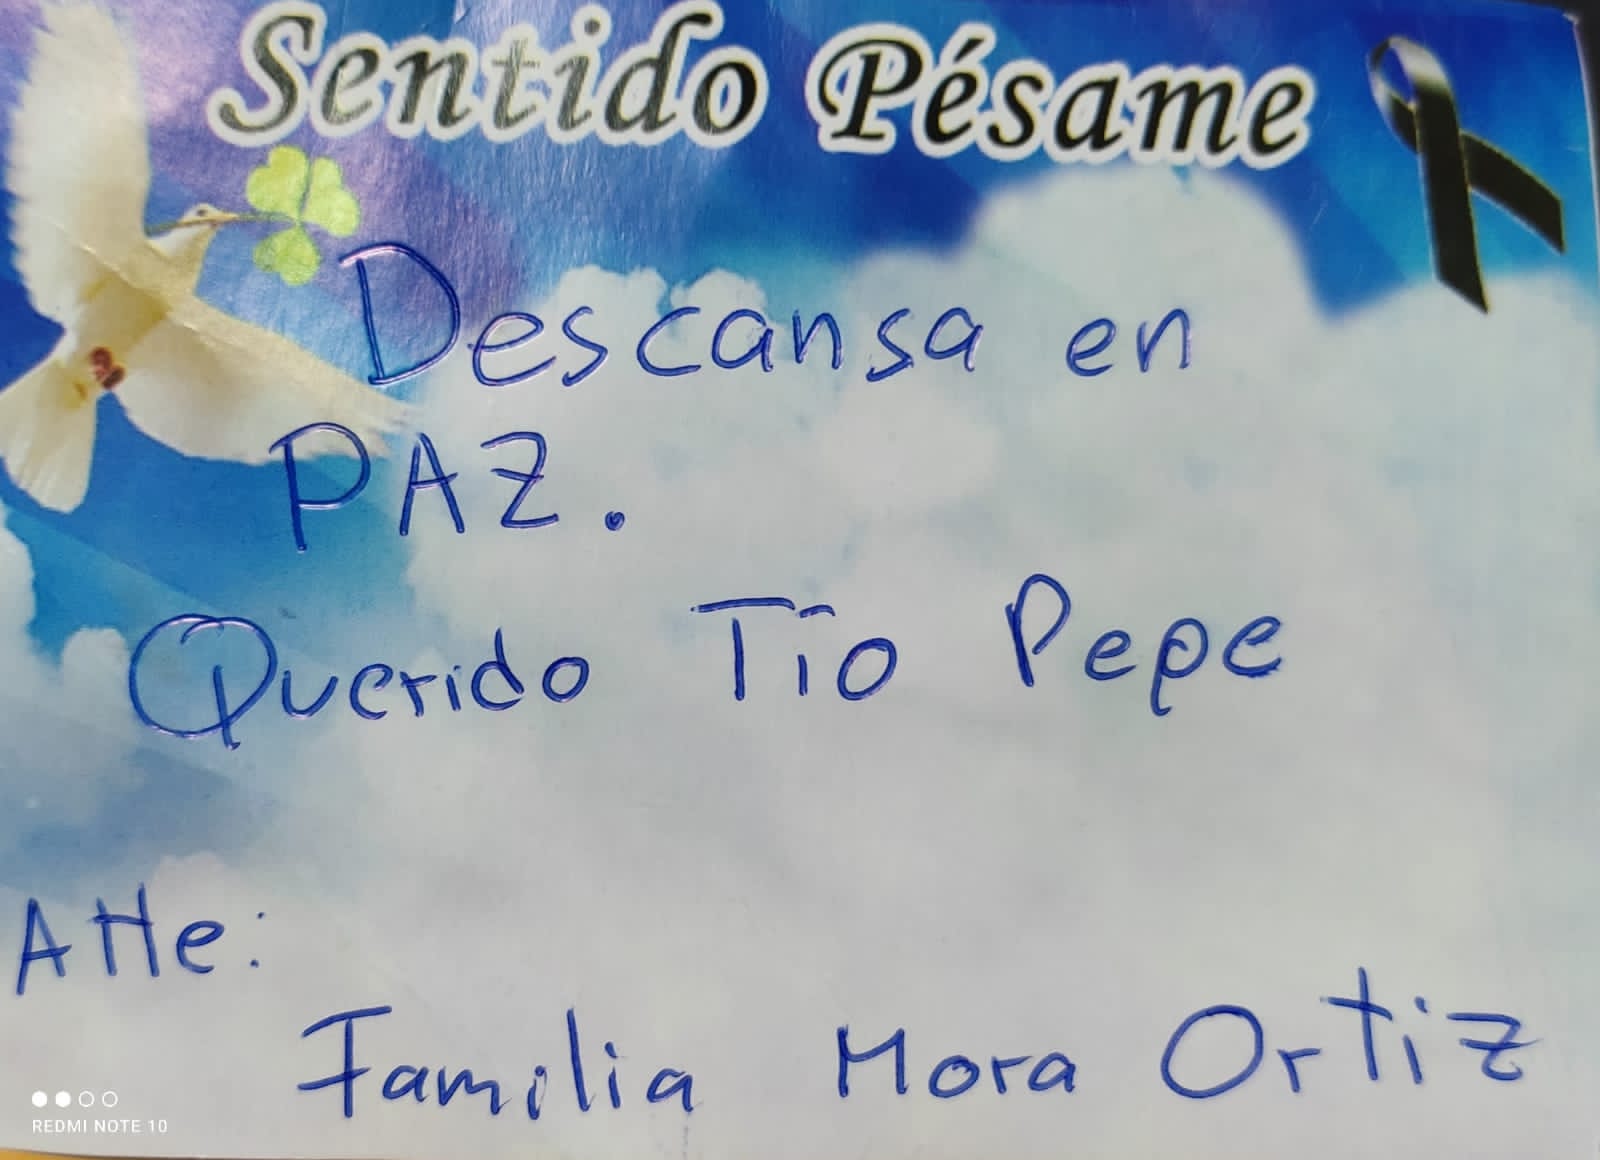 Sentido Pésame
Descansa en
PAZ.
Querido Tío Pepe
Atte:
Familia Mora Ortiz
REDMI NOTE 10